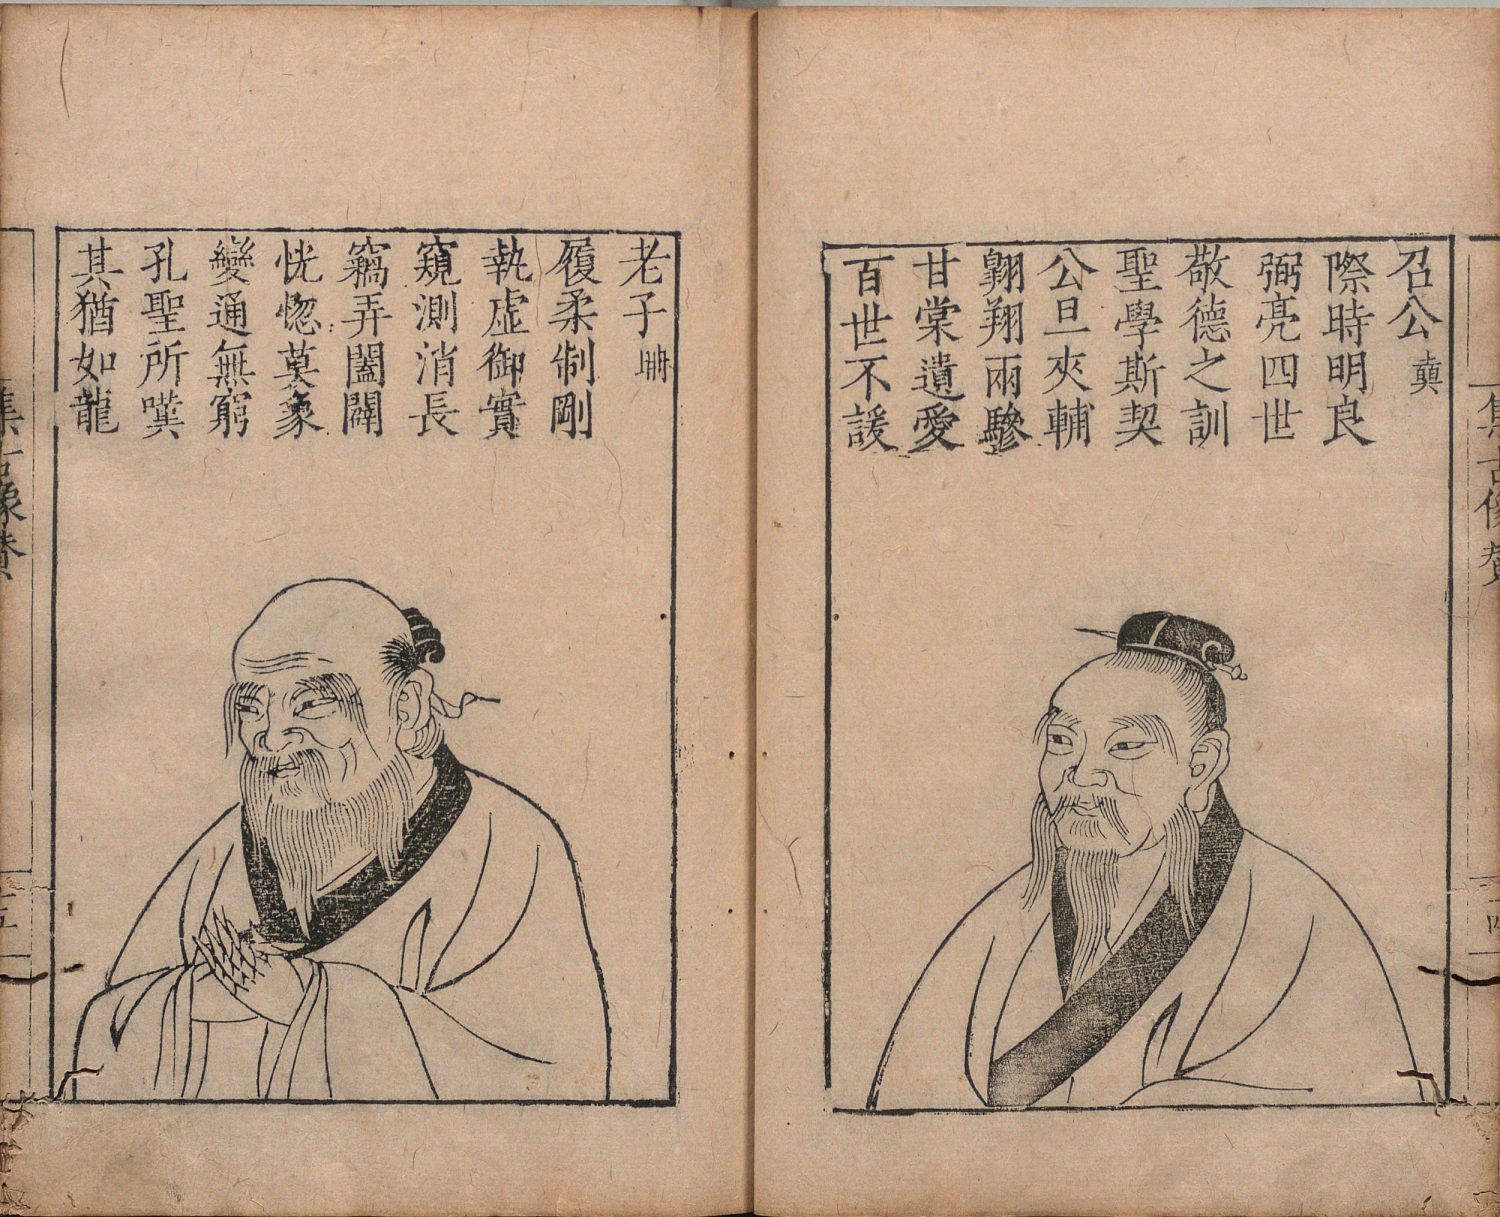 召公
際時明良
弼亮四世
敬德之訓
聖學斯契
公旦夾輔
翺翔兩驂
甘棠遺愛
百世不諼
老子 冊
履柔制剛
執虛御實
窺測消長
竊弄闔闢
恍惚莫象
變通無窮
孔聖所嘆
其猶如龍
集古像贊
集古像贊